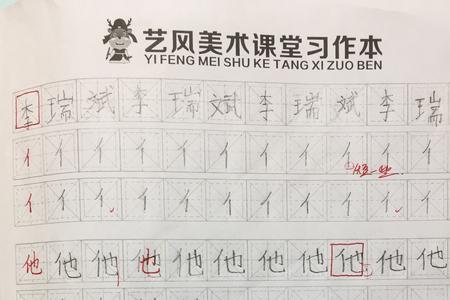 艺风美术课堂习作本
YI FENG MEI SHU KE TANG XI ZUO BEN
李瑞斌李瑞斌李瑞斌李瑞
亻亻亻亻亻亻亻亻亻亻亻
短一些
亻亻亻亻亻亻亻亻亻亻亻
他他他他他他他他他他他